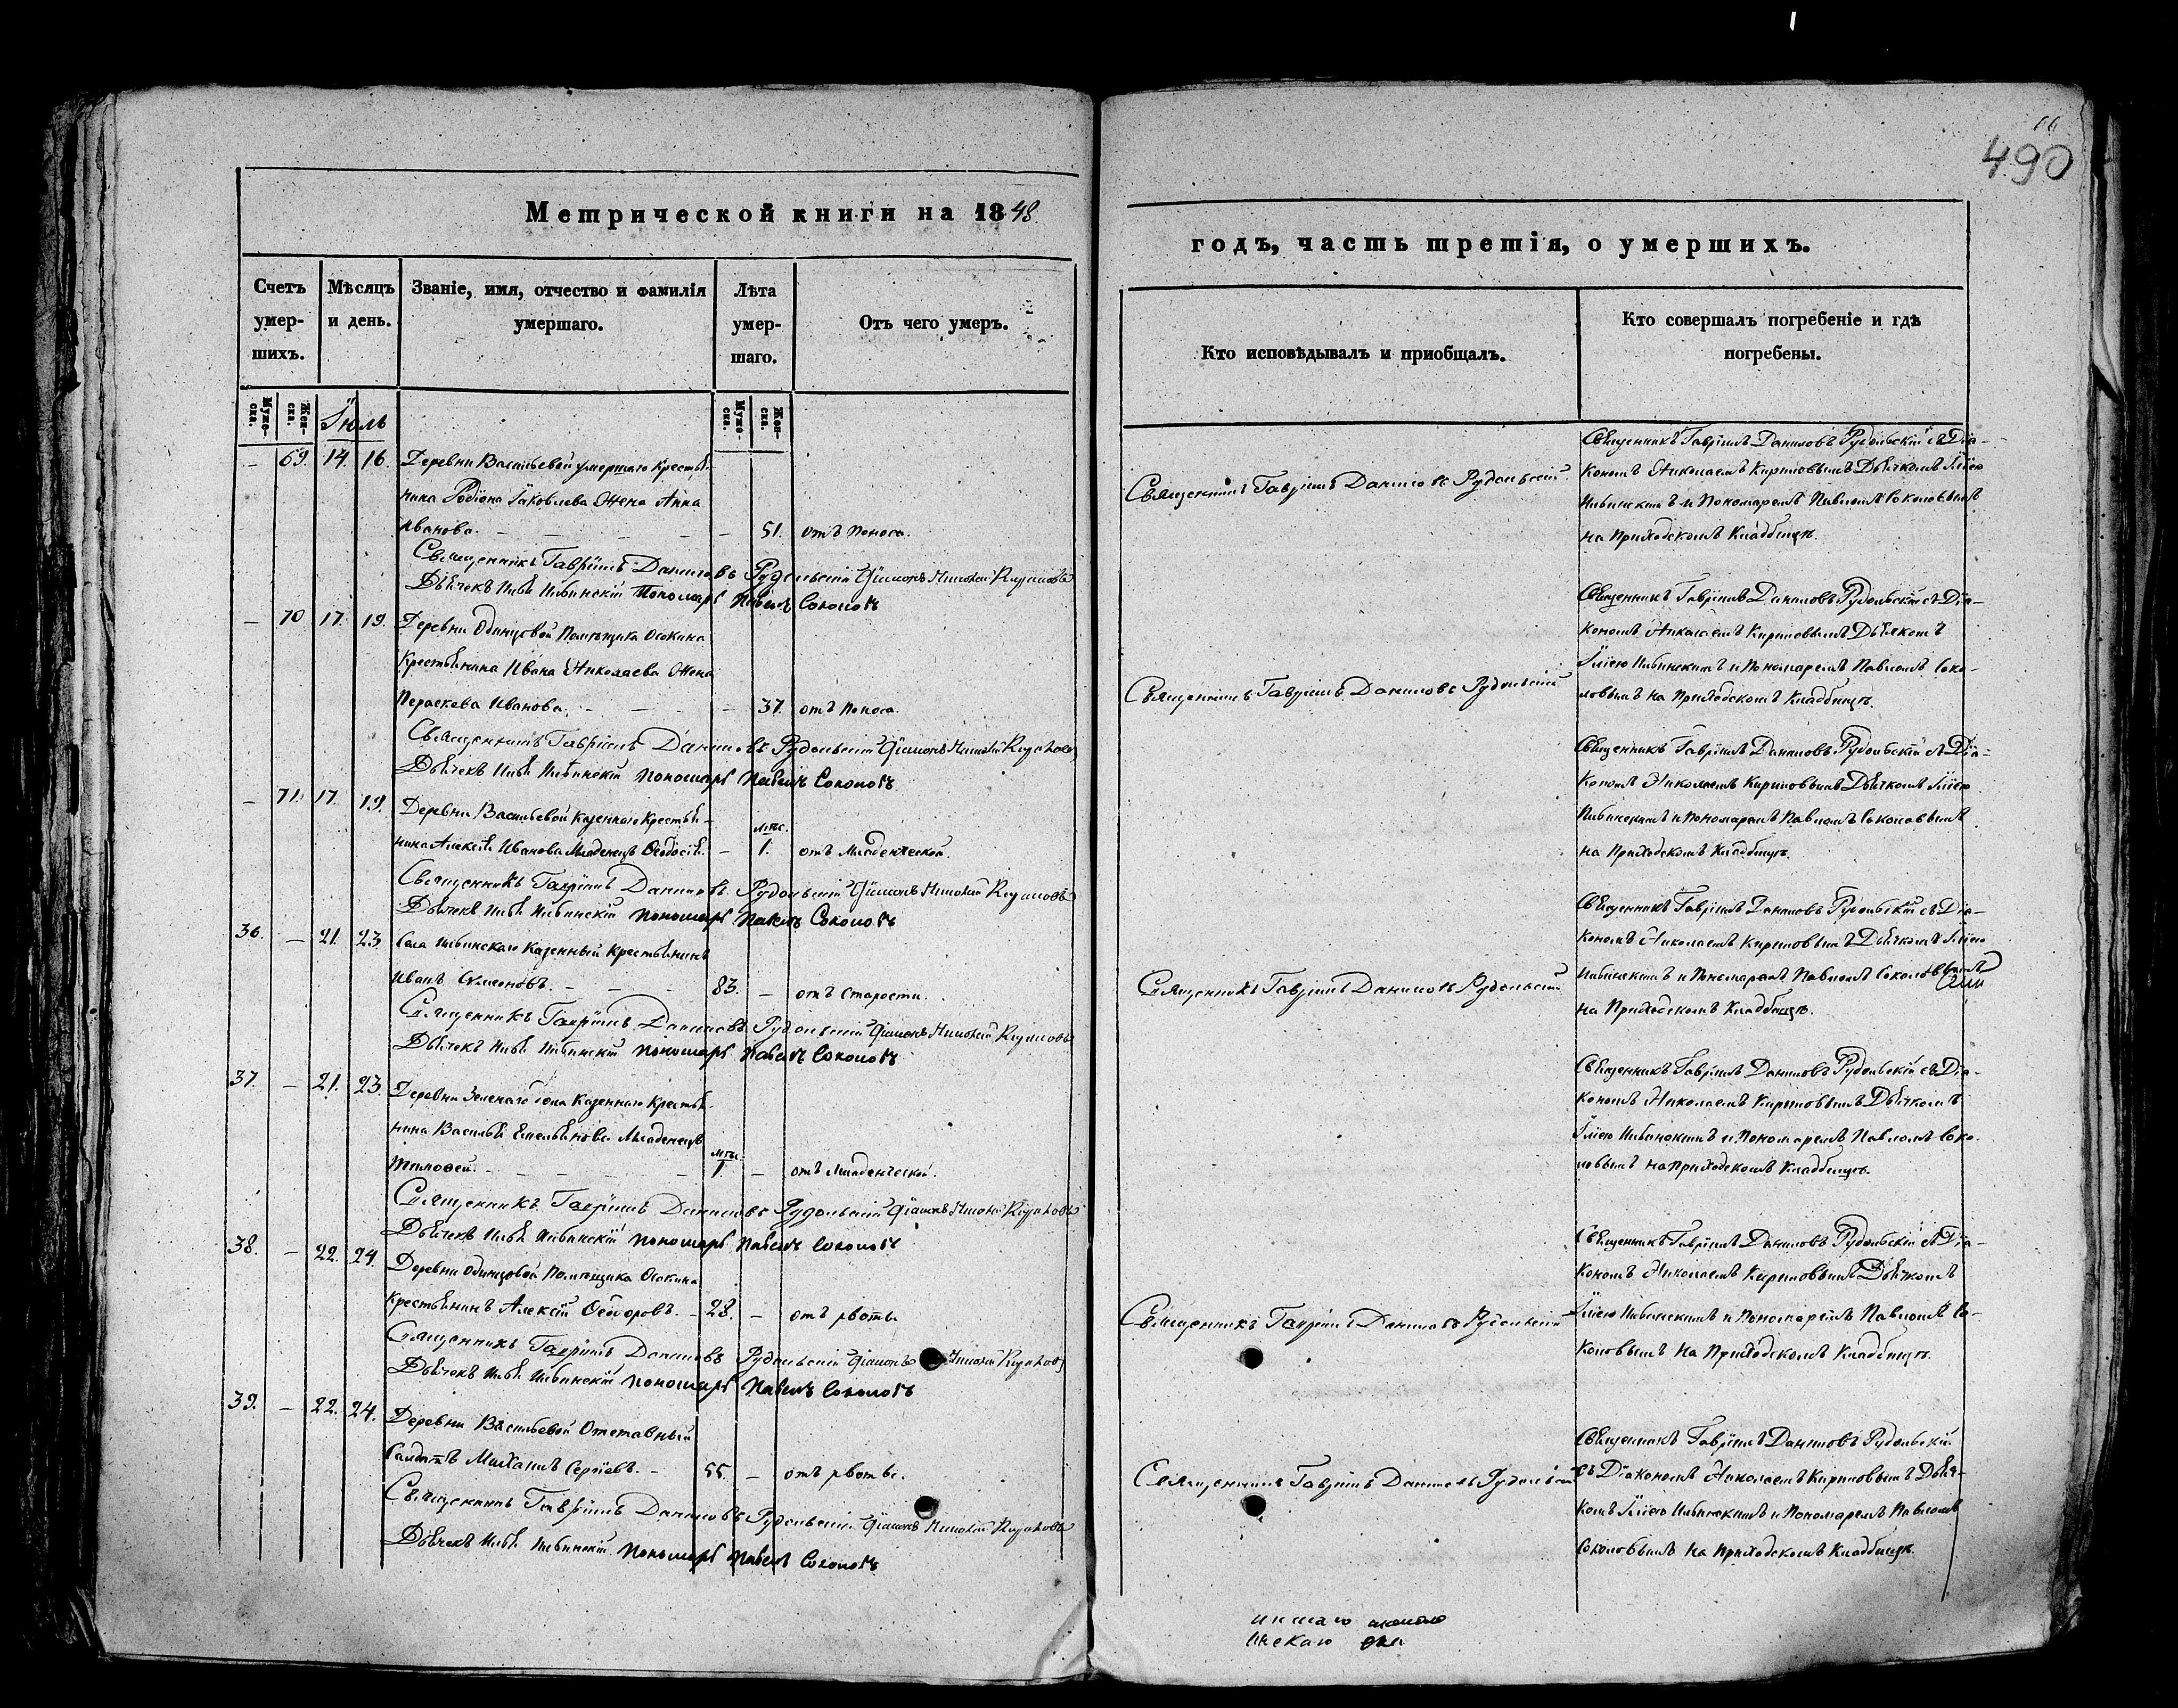 66
490
Метрической книги на 1848
годъ, часть третія, о умершихъ.
Счетъ умер-шихъ.
Мѣсяцъ и день.
Званіе, имя, отчество и фамилія умершаго.
Лѣта умер-шаго.
Отъ чего умеръ.
Кто исповѣдывалъ и приобщалъ.
Кто совершалъ погребеніе и гдѣ погребены.
Муже-ска.
Жен-ска.
Іюль
Муже-ска.
Жен-ска.
— 69. 14. 16. Деревни Васильевой умершаго Крестья-
нина Родіона Іаковлева Жена Анна
Иванова. — 51. отъ поноса.
Священникъ Гавріилъ Даниловъ Рудольскій Діаконъ Николай Кириловъ
Дьячекъ Илья Ильинскій Пономарь Павелъ Соколовъ
Священникъ Гавріилъ Даниловъ Рудольскій
Священникъ Гавріилъ Даниловъ Рудольскій съ Діа-
кономъ Николаемъ Кириловымъ Дьячкомъ Іліею
Ильинскимъ и Пономаремъ Павломъ Соколовымъ
на Приходскомъ Кладбищѣ.
— 70 17. 19. Деревни Одинцовой Помѣщика Осокина
Крестьянина Ивана Николаева Жена
Параскева Иванова. — 37. отъ поноса.
Священникъ Гавріилъ Даниловъ Рудольскій Діаконъ Николай Кириловъ
Дьячекъ Илья Ильинскій Пономарь Павелъ Соколовъ
Священникъ Гавріилъ Даниловъ Рудольскій
Священникъ Гавріилъ Даниловъ Рудольскій съ Діа-
кономъ Николаемъ Кириловымъ Дьячкомъ
Іліею Ильинскимъ и Пономаремъ Павломъ Соко-
ловымъ на Приходскомъ Кладбищѣ.
— 71. 17. 19. Деревни Васильевой Казеннаго Крестья-
нина Алексѣя Иванова Младенецъ Ѳеодосія. — мѣс. 1. отъ Младенческой.
Священникъ Гавріилъ Даниловъ Рудольскій Діаконъ Николай Кириловъ
Дьячекъ Илья Ильинскій Пономарь Павелъ Соколовъ
Священникъ Гавріилъ Даниловъ Рудольскій съ Діа-
кономъ Николаемъ Кириловымъ Дьячкомъ Іліею
Ильинскимъ и Пономаремъ Павломъ Соколовымъ
на Приходскомъ Кладбищѣ.
36. — 21. 23. Села Ильинскаго Казенный Крестьянинъ
Иванъ Симеоновъ. 83. — отъ старости.
Священникъ Гавріилъ Даниловъ Рудольскій Діаконъ Николай Кириловъ
Дьячекъ Илья Ильинскій Пономарь Павелъ Соколовъ
Священникъ Гавріилъ Даниловъ Рудольскій
Священникъ Гавріилъ Даниловъ Рудольскій съ Діа-
кономъ Николаемъ Кириловымъ Дьячкомъ Іліею
Ильинскимъ и Пономаремъ Павломъ Соколовымъ
на Приходскомъ Кладбищѣ.
37. — 21. 23. Деревни Казеннаго Крестья-
нина Василья Емельянова Младенецъ
Тимофей. мѣс. 1. — отъ Младенческой.
Священникъ Гавріилъ Даниловъ Рудольскій Діаконъ Николай Кириловъ
Дьячекъ Илья Ильинскій Пономарь Павелъ Соколовъ
Священникъ Гавріилъ Даниловъ Рудольскій съ Діа-
кономъ Николаемъ Кириловымъ Дьячкомъ
Іліею Ильинскимъ и Пономаремъ Павломъ Соко-
ловымъ на Приходскомъ Кладбищѣ.
38. — 22. 24. Деревни Одинцовой Помѣщика Осокина
Крестьянинъ Алексій Ѳеодоровъ. — 28. — отъ рвоты.
Священникъ Гавріилъ Даниловъ Рудольскій Діаконъ Николай Кириловъ
Дьячекъ Илья Ильинскій Пономарь Павелъ Соколовъ
Священникъ Гавріилъ Даниловъ Рудольскій
Священникъ Гавріилъ Даниловъ Рудольскій съ Діа-
кономъ Николаемъ Кириловымъ Дьячкомъ
Іліею Ильинскимъ и Пономаремъ Павломъ Со-
коловымъ на Приходскомъ Кладбищѣ.
39. — 22. 24. Деревни Васильевой Отставный
Салдатъ Михаилъ Сергіевъ. — 55. — отъ рвоты.
Священникъ Гавріилъ Даниловъ Рудольскій Діаконъ Николай Кириловъ
Дьячекъ Илья Ильинскій Пономарь Павелъ Соколовъ
Священникъ Гавріилъ Даниловъ Рудольскій
Священникъ Гавріилъ Даниловъ Рудольскій
съ Діакономъ Николаемъ Кириловымъ Дьяч-
комъ Іліею Ильинскимъ и Пономаремъ Павломъ
Соколовымъ на Приходскомъ Кладбищѣ.